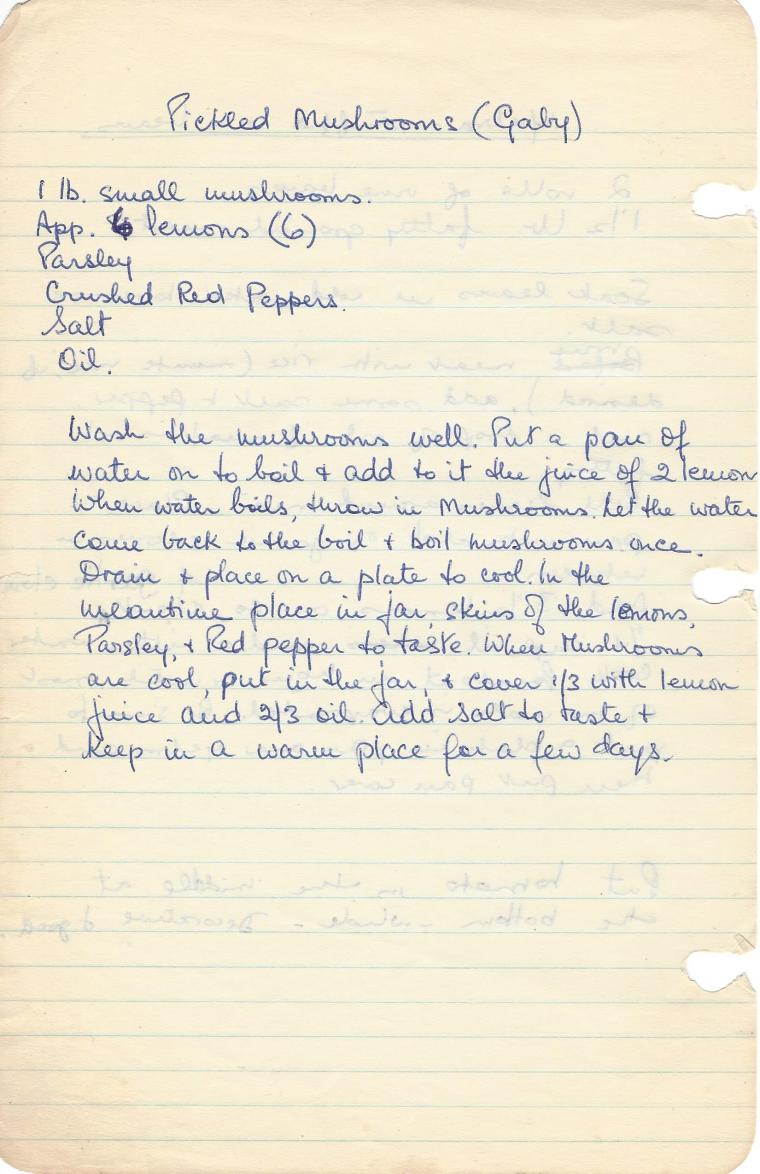 Pickled Mushrooms (Gaby)
1 lb. small mushrooms.
App. 6 lemons (6)
Parsley
Crushed Red Peppers.
Salt
Oil.
Wash the mushrooms well. Put a pan of
water on to boil & add to it the juice of 2 lemon
When water boils, throw in Mushrooms. Let the water
come back to the boil & boil mushrooms once.
Drain & place on a plate to cool. In the
meantime place in jar, skins of the lemons,
Parsley, & Red pepper to taste. When Mushrooms
are cool, put in the jar, & cover 1/3 with lemon
juice and 2/3 oil. Add salt to taste &
keep in a warm place for a few days.